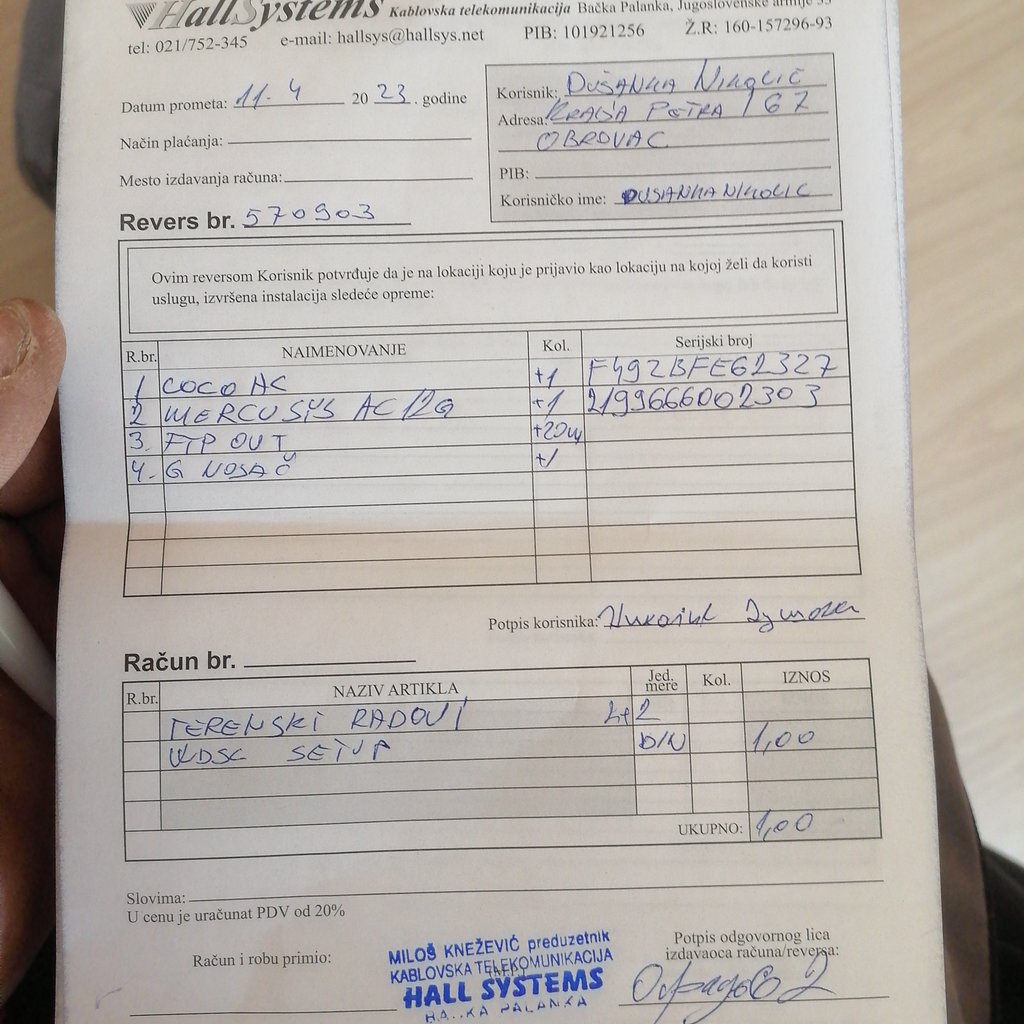 HallSystems Kablovska telekomunikacija Bačka Palanka, Jugoslovenske armije 33
tel: 021/752-345 e-mail: hallsys@hallsys.net PIB: 101921256 Ž.R: 160-157296-93
Datum prometa: 11. 4 20 23. godine
Način plaćanja:
Mesto izdavanja računa:
Revers br. 570903
Korisnik: DUŠANKA NIKOLIĆ
Adresa: KRALJA PETRA I 67
OBROVAC
PIB:
Korisničko ime: DUSANKANIKOLIC
Ovim reversom Korisnik potvrđuje da je na lokaciji koju je prijavio kao lokaciju na kojoj želi da koristi
uslugu, izvršena instalacija sledeće opreme:
R.br. NAIMENOVANJE Kol. Serijski broj
1 COCO AC +1 F492BFE61327
2 MERCUSYS AC12G +1 2199666002303
3. FTP OUT +20m
4. G NOSAČ +1
Potpis korisnika:
Račun br.
R.br. NAZIV ARTIKLA Jed. mere Kol. IZNOS
TERENSKI RADOVI L+2
WDSC SETUP DIN 1,00
UKUPNO: 1,00
Slovima:
U cenu je uračunat PDV od 20%
Račun i robu primio:
MILOŠ KNEŽEVIĆ preduzetnik
KABLOVSKA TELEKOMUNIKACIJA
HALL SYSTEMS
BAČKA PALANKA
Potpis odgovornog lica
izdavaoca računa/reversa: